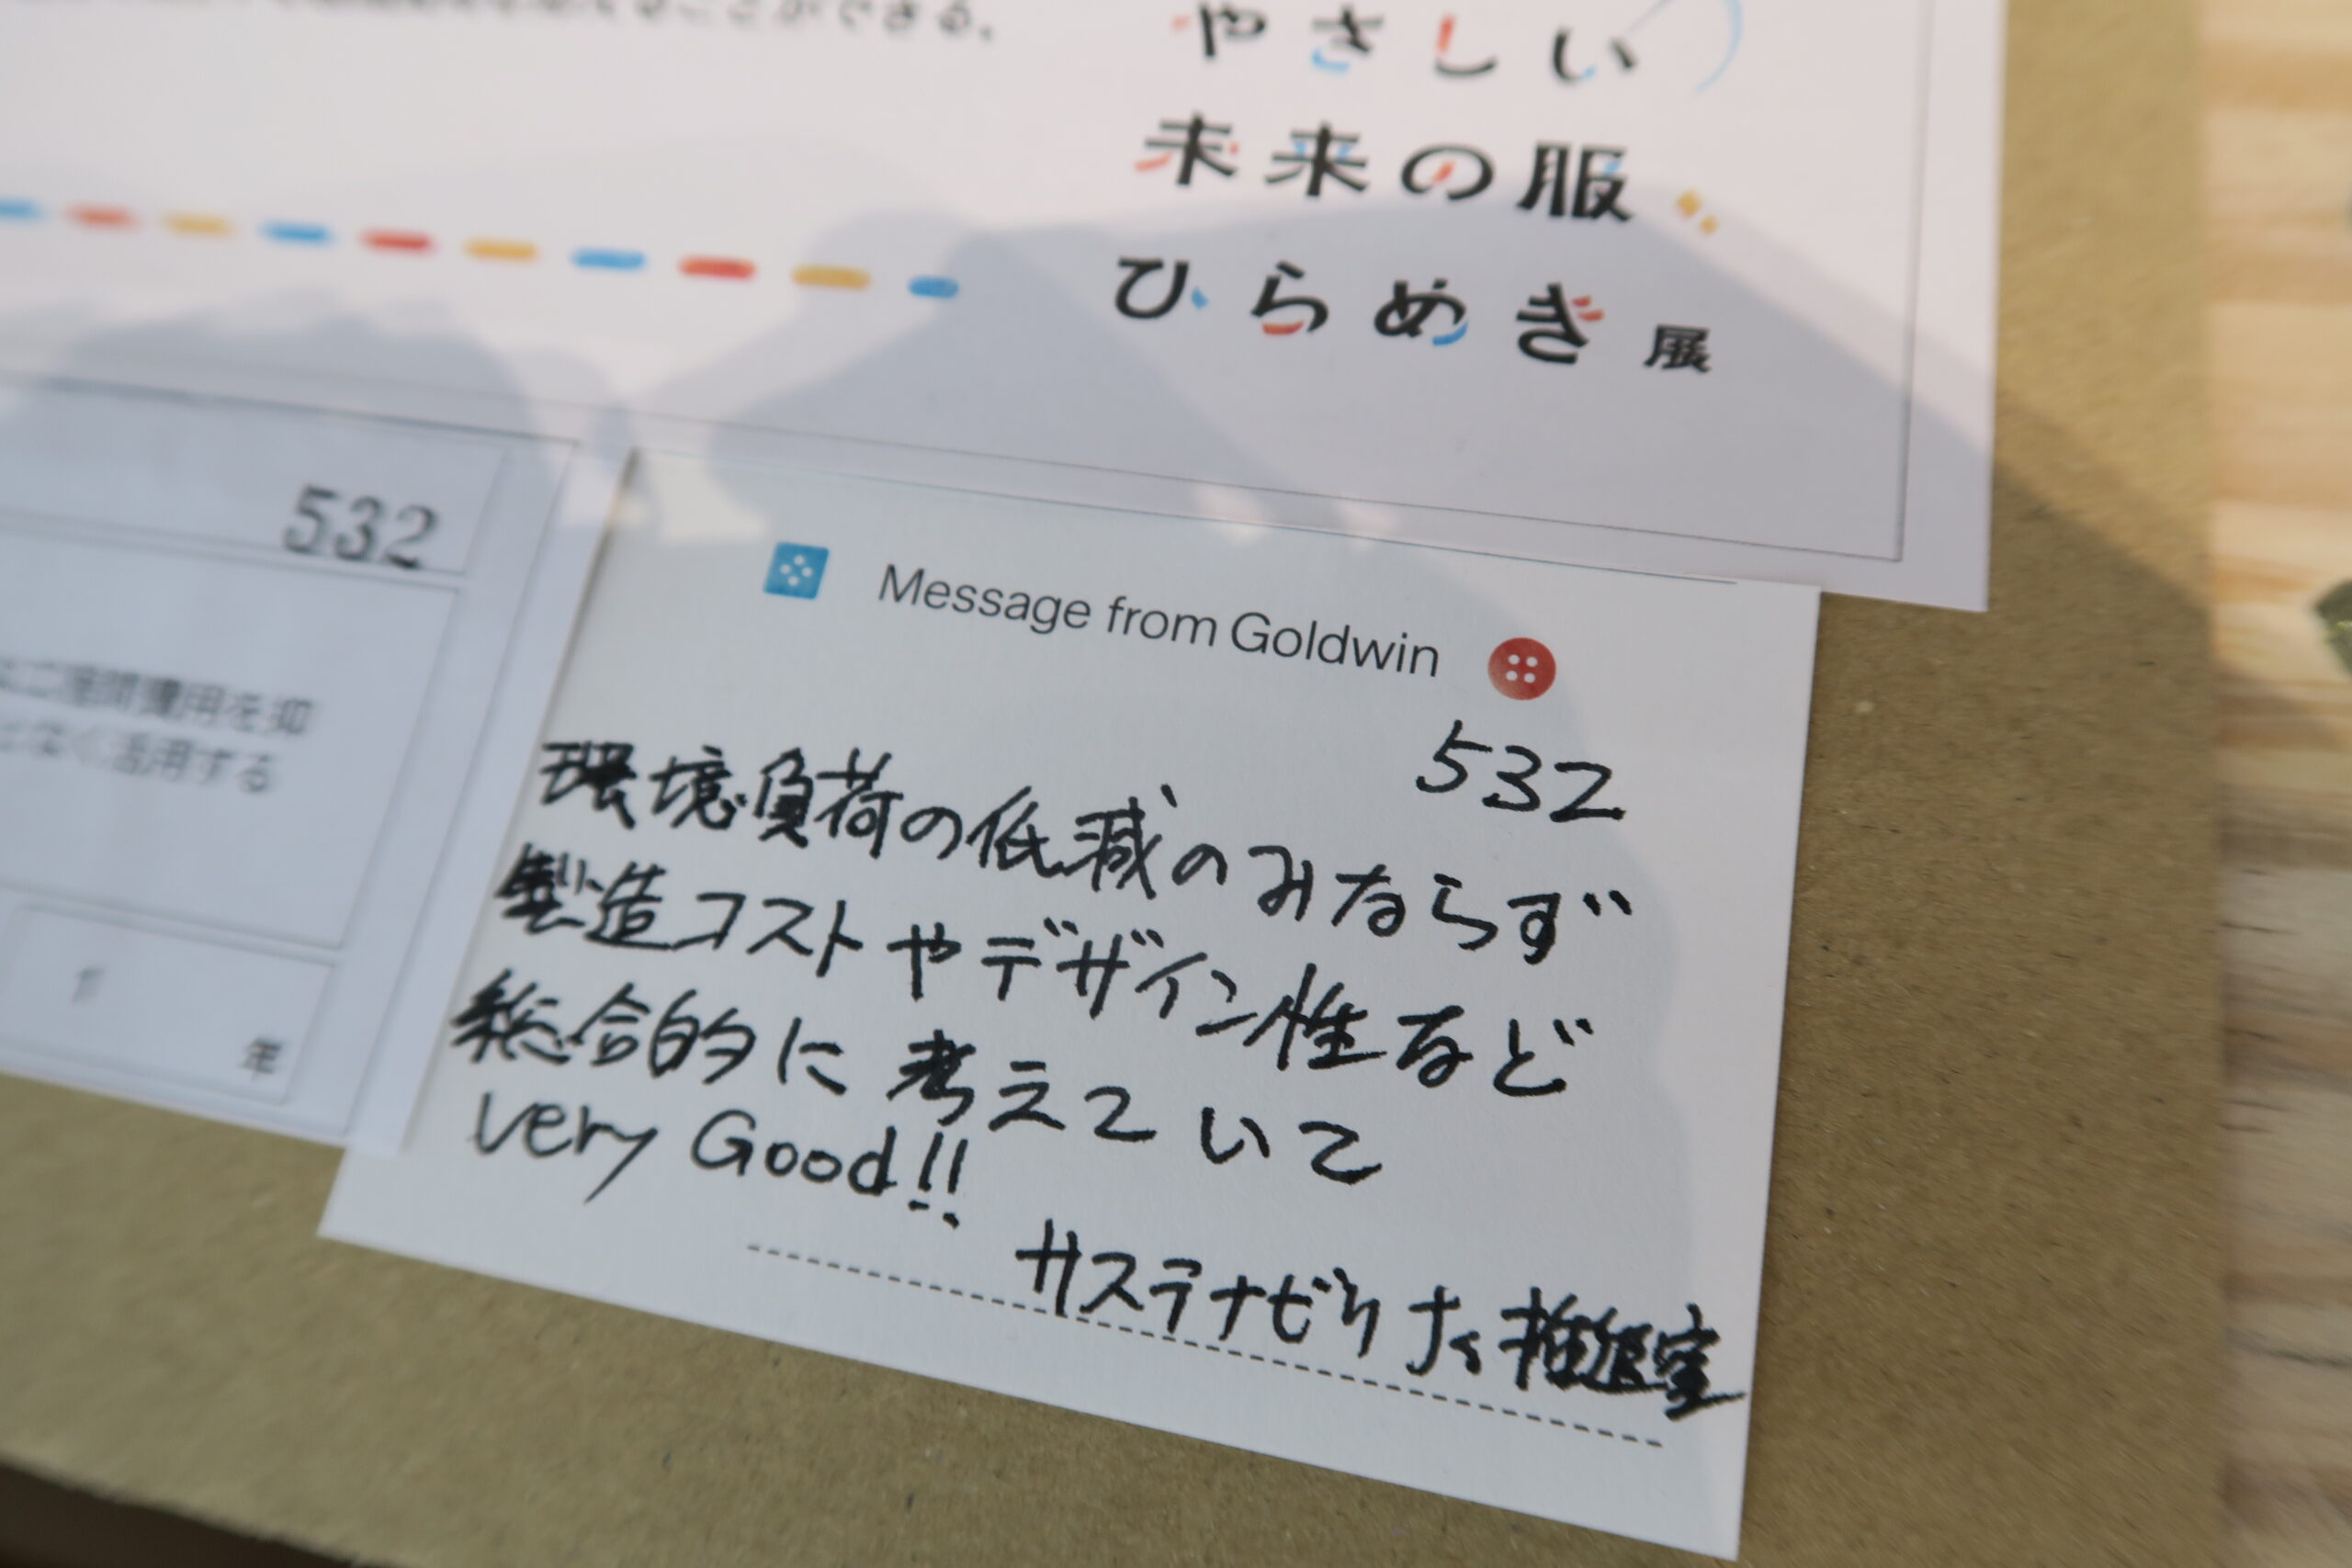 ことができる。
やさしい
未来の服
ひらめき展
532
二酸
費用を抑
となく活用する
年
Message from Goldwin
532
環境負荷の低減のみならず
製造コストやデザイン性など
総合的に考えていて
Very Good!!
サステナビリティ推進室